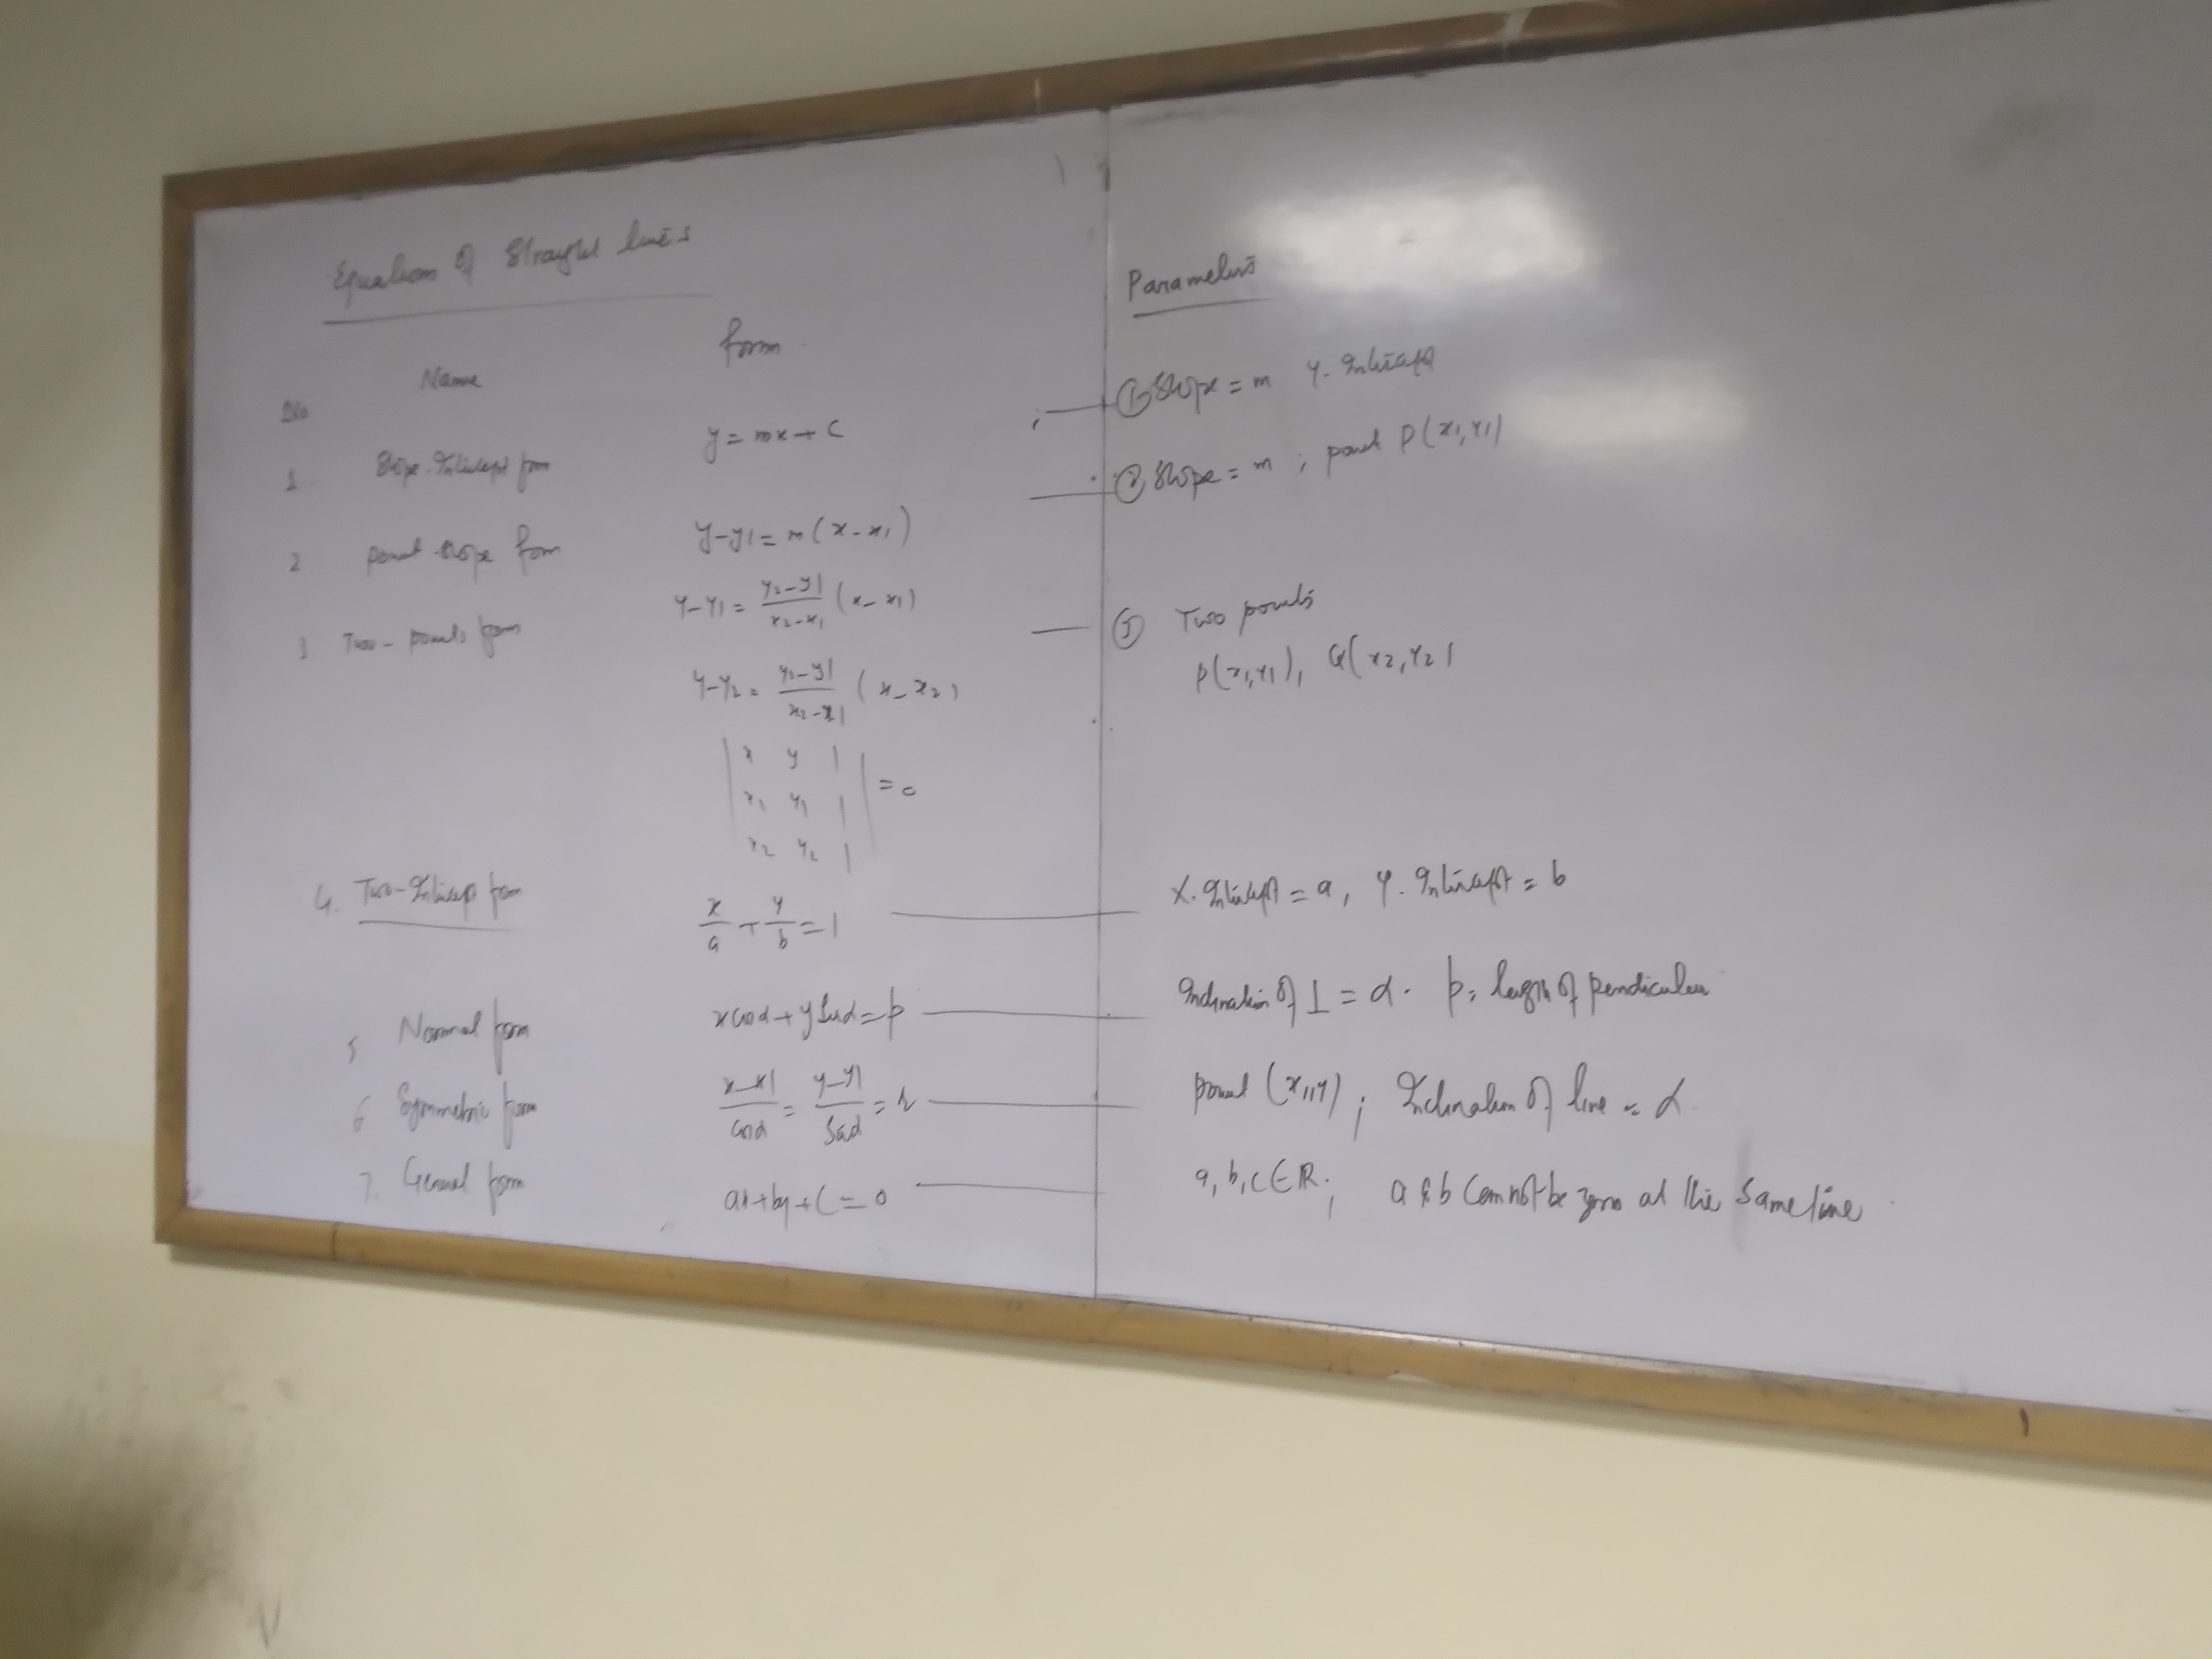 Equations of Straight lines
Parameters
No. Name form
1. Slope-Intercept form y = mx + c ; ① Slope = m Y-Intercept
2 point-slope form y-y1 = m(x-x1) ② Slope = m ; point P(x1,y1)
3 Two-points form y-y1 = y2-y1/x2-x1 (x-x1) ③ Two points
P(x1,y1), Q(x2,y2)
y-y2 = y2-y1/x2-x1 (x-x2)
| x y 1 |
| x1 y1 1 | = 0
| x2 y2 1 |
4. Two-Intercept form x/a + y/b = 1 X-Intercept = a, Y-Intercept = b
5 Normal form x cosα + y Sinα = p Inclination of ⊥ = α. p = length of pendicular
6 Symmetric form x-x1/cosα = y-y1/Sinα = r point (x1,y1) ; Inclination of line = α.
7. General form ax+by+c = 0 a, b, c ∈ R ; a & b Cannot be zero at the same time